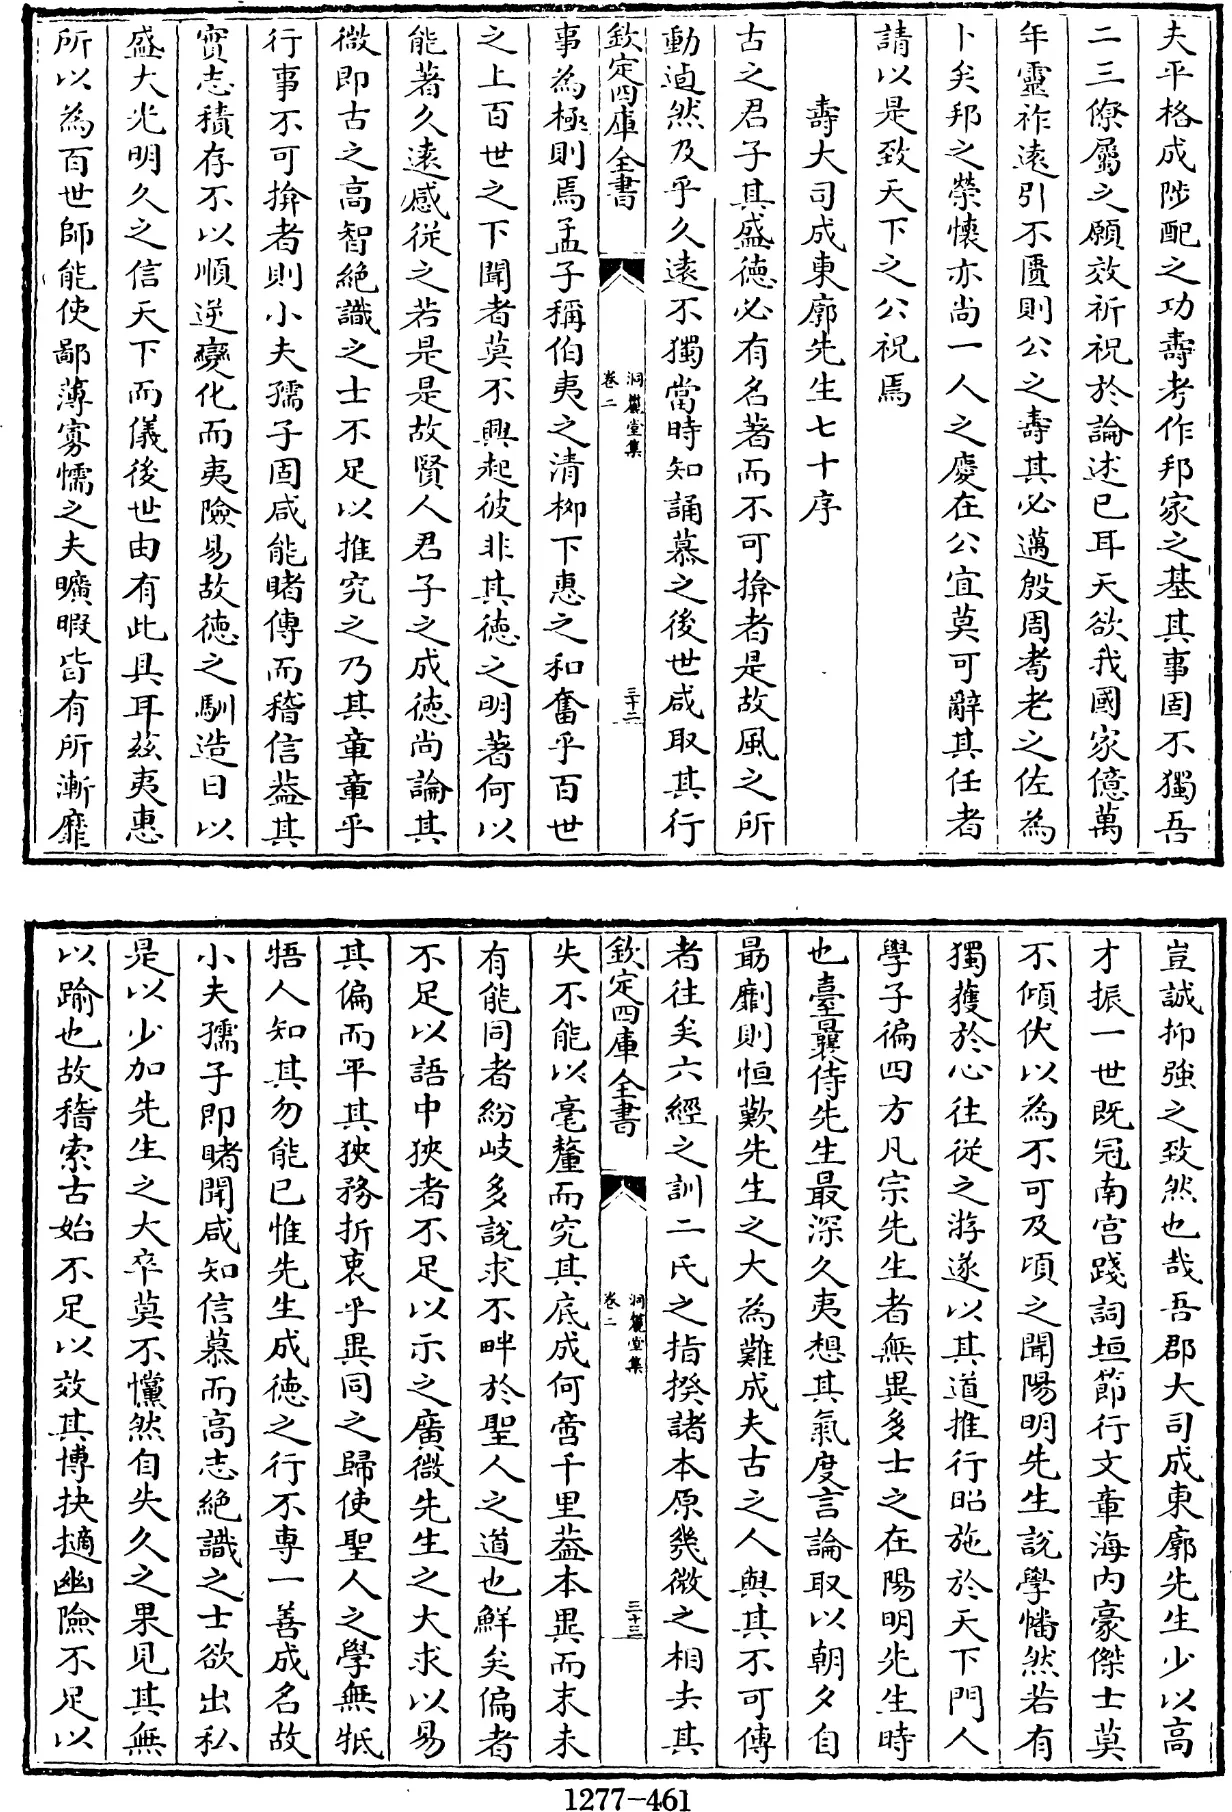 夫平格成陟配之功壽考作邦家之基其事固不獨吾
二三僚屬之願效祈祝於論述已耳天欲我國家億萬
年靈祚遠引不匱則公之壽其必邁殷周耉老之佐為
卜矣邦之榮懷亦尚一人之慶在公宜莫可辭其任者
請以是致天下之公祝焉
壽大司成東廓先生七十序
古之君子其盛德必有名著而不可揜者是故風之所
動逌然及乎久遠不獨當時知誦慕之後世咸取其行
欽定四庫全書
洞麓堂集
卷二
三十二
事為極則焉孟子稱伯夷之清柳下惠之和奮乎百世
之上百世之下聞者莫不興起彼非其德之明著何以
能著久遠感從之若是是故賢人君子之成德尚論其
微即古之高智絶識之士不足以推究之乃其章章乎
行事不可揜者則小夫孺子固咸能睹傳而稽信葢其
實志積存不以順逆變化而夷險易故德之馴造日以
盛大光明久之信天下而儀後世由有此具耳茲夷惠
所以為百世師能使鄙薄寡懦之夫曠暇皆有所漸靡
豈誠抑強之致然也哉吾郡大司成東廓先生少以高
才振一世既冠南宫踐詞垣節行文章海内豪傑士莫
不傾伏以為不可及頃之聞陽明先生説學幡然若有
獨獲於心往從之游遂以其道推行昭施於天下門人
學子徧四方凡宗先生者無異多士之在陽明先生時
也臺曩侍先生最深久夷想其氣度言論取以朝夕自
朂劘則恒歎先生之大為難成夫古之人與其不可傳
者往矣六經之訓二氏之指揆諸本原幾微之相去其
欽定四庫全書
洞麓堂集
卷二
三十三
失不能以毫釐而究其底成何啻千里葢本異而末未
有能同者紛岐多説求不畔於聖人之道也鮮矣偏者
不足以語中狹者不足以示之廣微先生之大求以易
其偏而平其狹務折衷乎異同之歸使聖人之學無牴
牾人知其勿能已惟先生成德之行不專一善成名故
小夫孺子即睹聞咸知信慕而高志絶識之士欲出私
是以少加先生之大卒莫不戃然自失久之果見其無
以踰也故稽索古始不足以效其博抉擿幽險不足以
1277-461